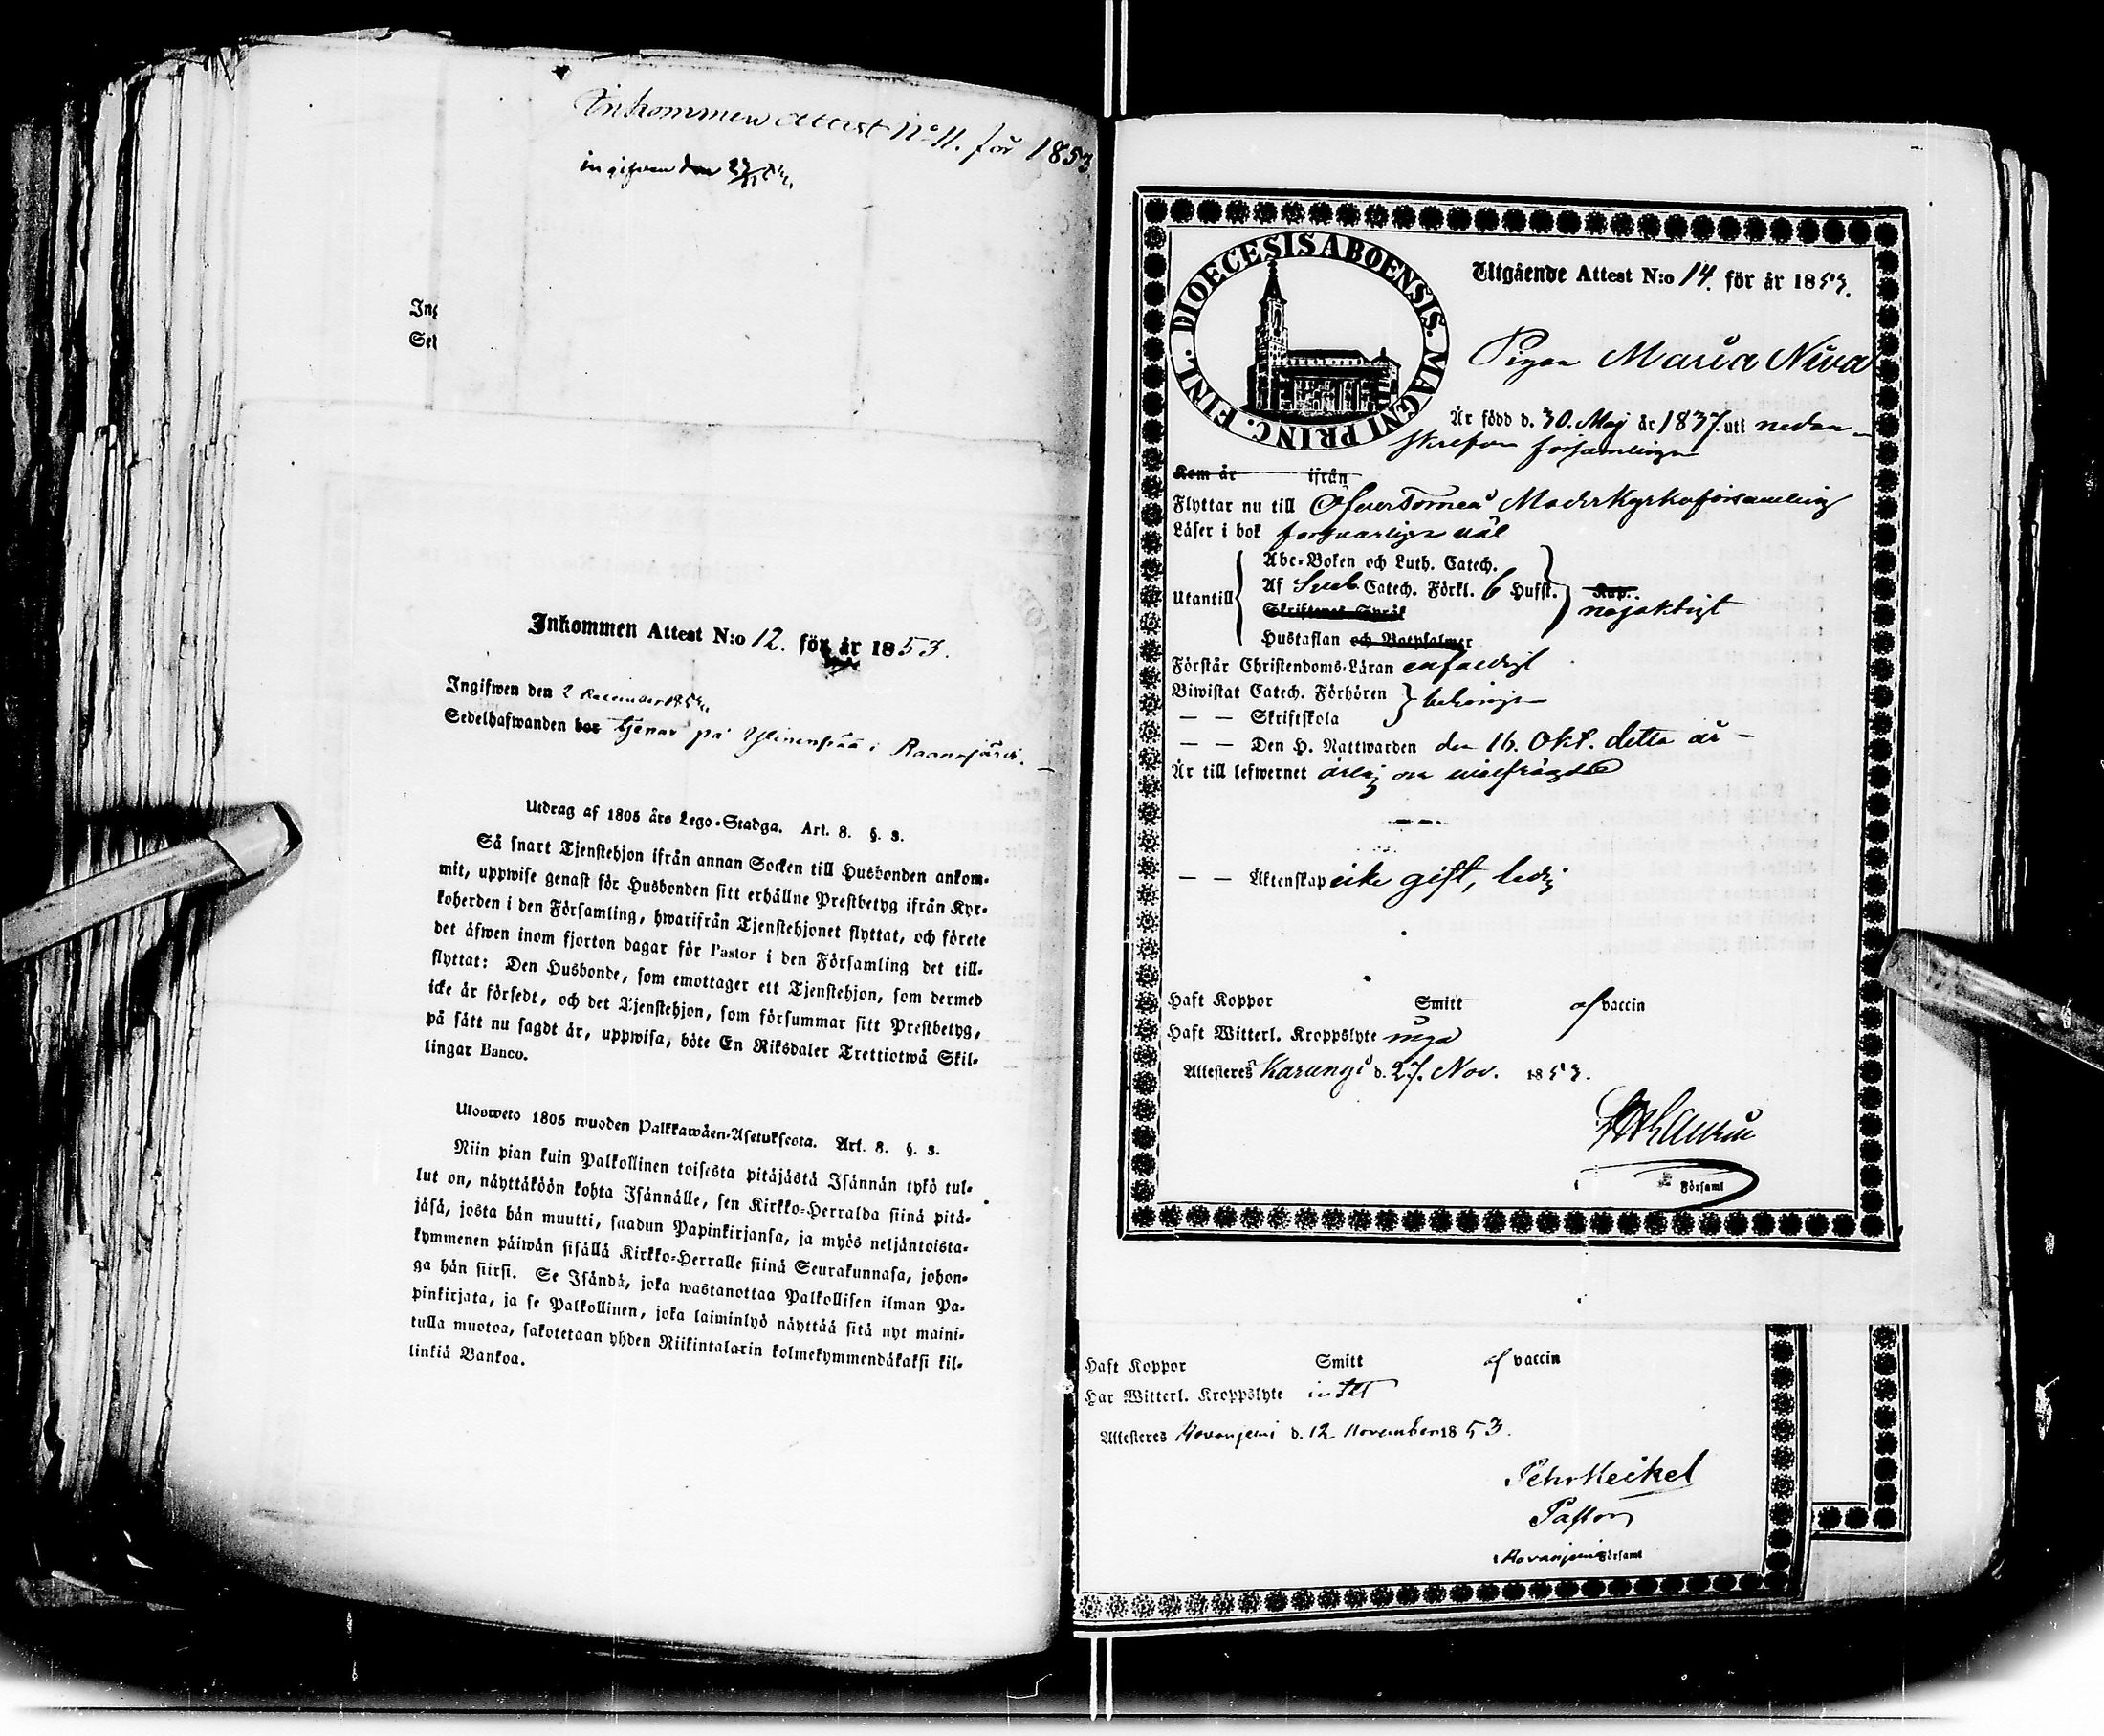 Inkommen Attest No 11. för 1853
ingifven den
Ing
Sed
Inkommen Attest N:o 12. för år 1853.
Ingifwen den 2 December 1853.
Sedelhafwanden bor tjenar på Ylinenpää i Raanujärvi.
Utdrag af 1805 års Lego-Stadga. Art. 8. §. 3.
Så snart Tjenstehjon ifrån annan Socken till Husbonden ankom-
mit, uppwise genast för Husbonden sitt erhållne Prestbetyg ifrån Kyr-
koherden i den Församling, hwarifrån Tjenstehjonet flyttat, och förete
det äfwen inom fjorton dagar för Pastor i den Församling det till-
flyttat: Den Husbonde, som emottager ett Tjenstehjon, som dermed
icke är försedt, och det Tjenstehjon, som försummar sitt Prestbetyg,
på sätt nu sagdt är, uppwisa, böte En Riksdaler Trettiotwå Skil-
lingar Banco.
Uloosweto 1805 wuoden Palkkawäen-Asetuksesta. Art. 8. §. 3.
Niin pian kuin Palkollinen toisesta pitäjästä Isännän tykö tul-
lut on, näyttäköön kohta Isännälle, sen Kirkko-Herralda siinä pitä-
jäsä, josta hän muutti, saadun Papinkirjansa, ja myös neljäntoista-
kymmenen päiwän sisällä Kirkko-Herralle siinä Seurakunnasa, johon-
ga hän siirsi. Se Isändä, joka wastanottaa Palkollisen ilman Pa-
pinkirjata, ja se Palkollinen, joka laiminlyö näyttää sitä nyt maini-
tulla muotoa, sakotetaan yhden Riikintalarin kolmekymmendäkaksi kil-
linkiä Bankoa.
DIOECESIS ABOENSIS. MAGNI PRINC. FINL.
Utgående Attest N:o 14. för år 1853.
Pigan Maria Niva
Är född d. 30. Maj år 1837. uti nedan-
skrefven församlingen
Kom år ifrån
Flyttar nu till Öfvertorneå Moderkyrkoförsamling
Läser i bok försvarligen väl
Utantill
Abc-Boken och Luth. Catech.
Af Sveb. Catech. Förkl. 6 Hufst.
Skriftenes Språk
Hustaflan och Botpsalmer
Kap.
nojaktigt
Förstår Christendoms-Läran enfaldigt
Biwistat Catech. Förhören
— — Skriftskola
behörigen
— — Den H. Nattwarden den 16. Okt. detta år —
Är till lefwernet ärlig och wälfrägdad
— — Äktenskap icke gift, ledig
Haft Koppor Smitt af vaccin
Haft Witterl. Kroppslyte inga
Attesteres Karungi d. 27. Nov. 1853.
Församl
Haft Koppor Smitt af vaccin
Har Witterl. Kroppslyte intet
Attesteres Rovaniemi d. 12 November 1853.
Pehr Heikel
Pastor
i Rovaniemi Församl